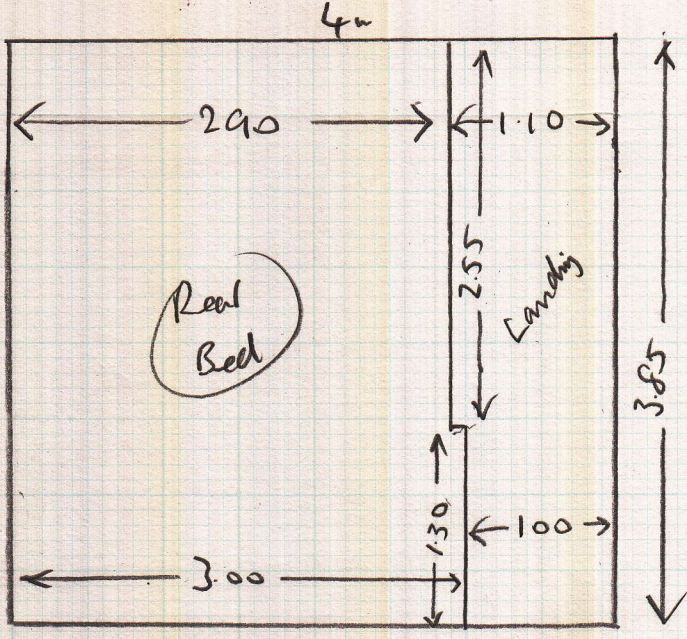 4m
290
1.10
2.55
Landing
Rear
Bed
3.85
1.30
100
3.00